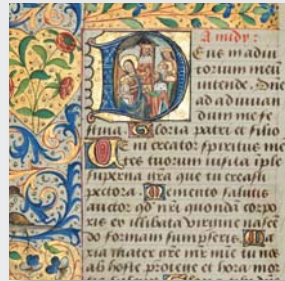 A midy :
Deus in adiu
torium meū
intende. Dne
ad adiuuan
dum me fe
stina. Gloria patri et filio
Veni creator spiritus me
tes tuorum uisita iple
superna gra que tu creasti
pectora. Memento salutis
auctor qd nri quondā corpo
ris ex illibata virgine nascē
do formam sumpseris. Ma
ria mater gre mr mie tu nos
ab hoste protege et hora mor